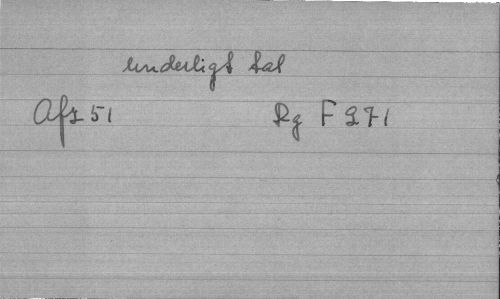 underligt tal
Afz 51 Rg F 271